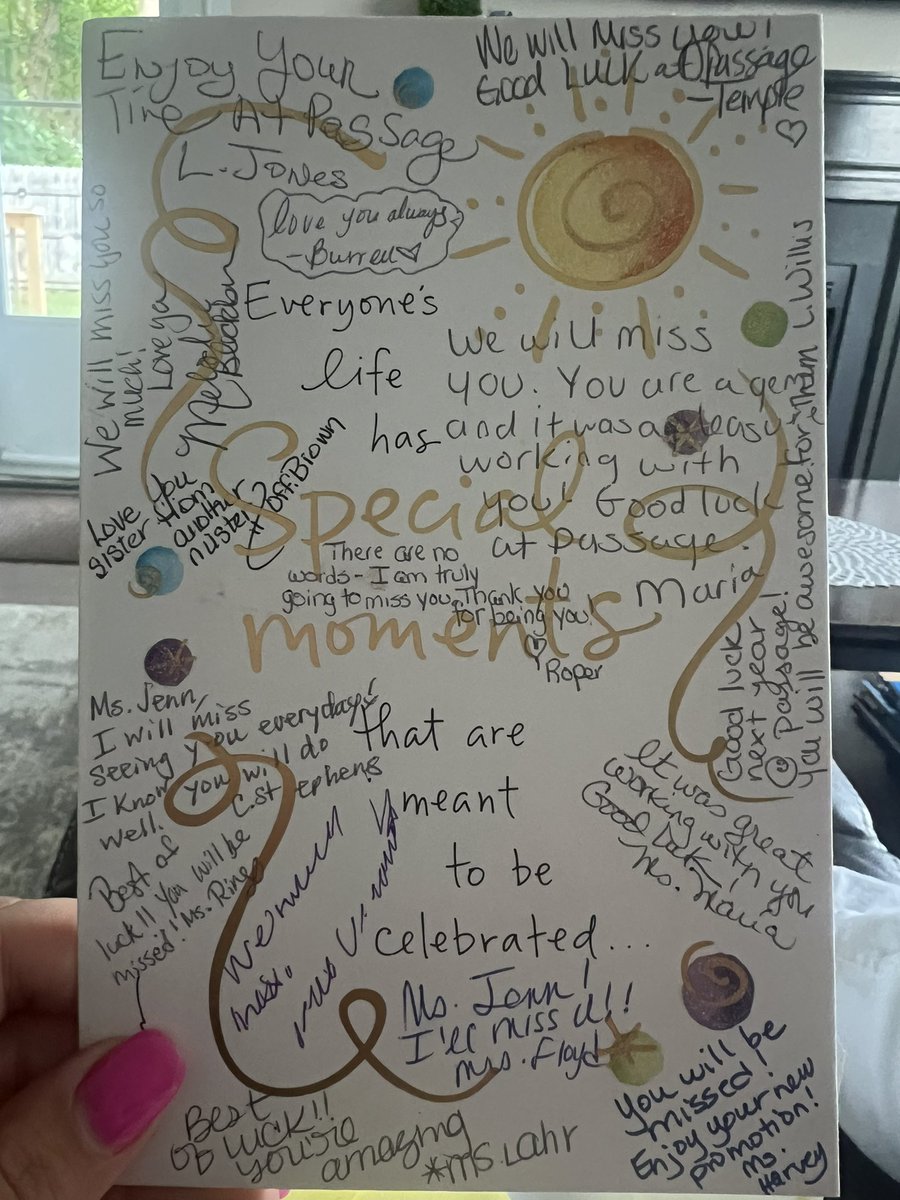 Enjoy Your
Time At Passage
L. Jones
We will Miss you!
Good Luck at Passage
-Temple
love you always
-Burrell
We will miss you so
much!
Love ya
Melody
Everyone's
life
has
Special
moments
that are
meant
to be
celebrated...
We will miss
you. You are a gem
and it was a
working with
you! Good luck
at Passage.
Maria
Love you
sister from
another
mister
There are no
words - I am truly
going to miss you. Thank you
for being you!
Roper
Good luck
next year
@ Passage!
You will be awesome for them L. Willis
Ms. Jenn,
I will miss
seeing you everyday!
I know you will do
well. C. Stephens
Best of
luck!! You will be
missed! Ms.
We will
miss
It was great
working with you
Good Luck!
Ms. Maria
Ms. Jenn!
I'll miss U!!
Mrs. Floyd
Best
of Luck!!
you're
amazing
*Ms. Lahr
You will be
missed!
Enjoy your new
promotion!
Ms.
Harvey